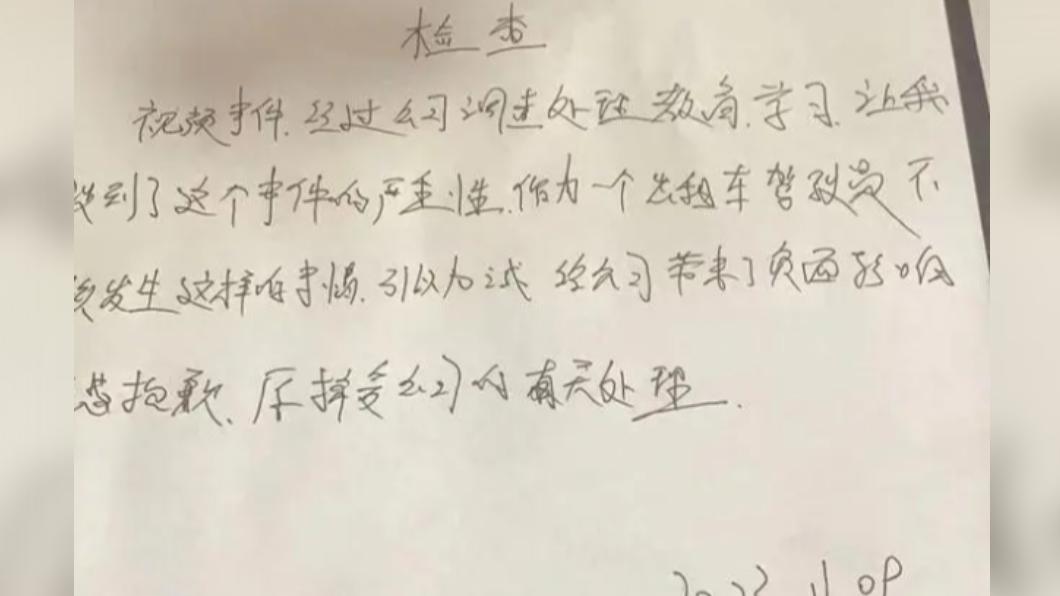 检查
视频事件.经过公司调查处理教育.学习.让我
识到了这个事件的严重性.作为一个出租车驾驶员不
该发生这样的事情.引以为戒 给公司带来了负面影响
感抱歉、愿接受公司的有关处理.
2023 11 09